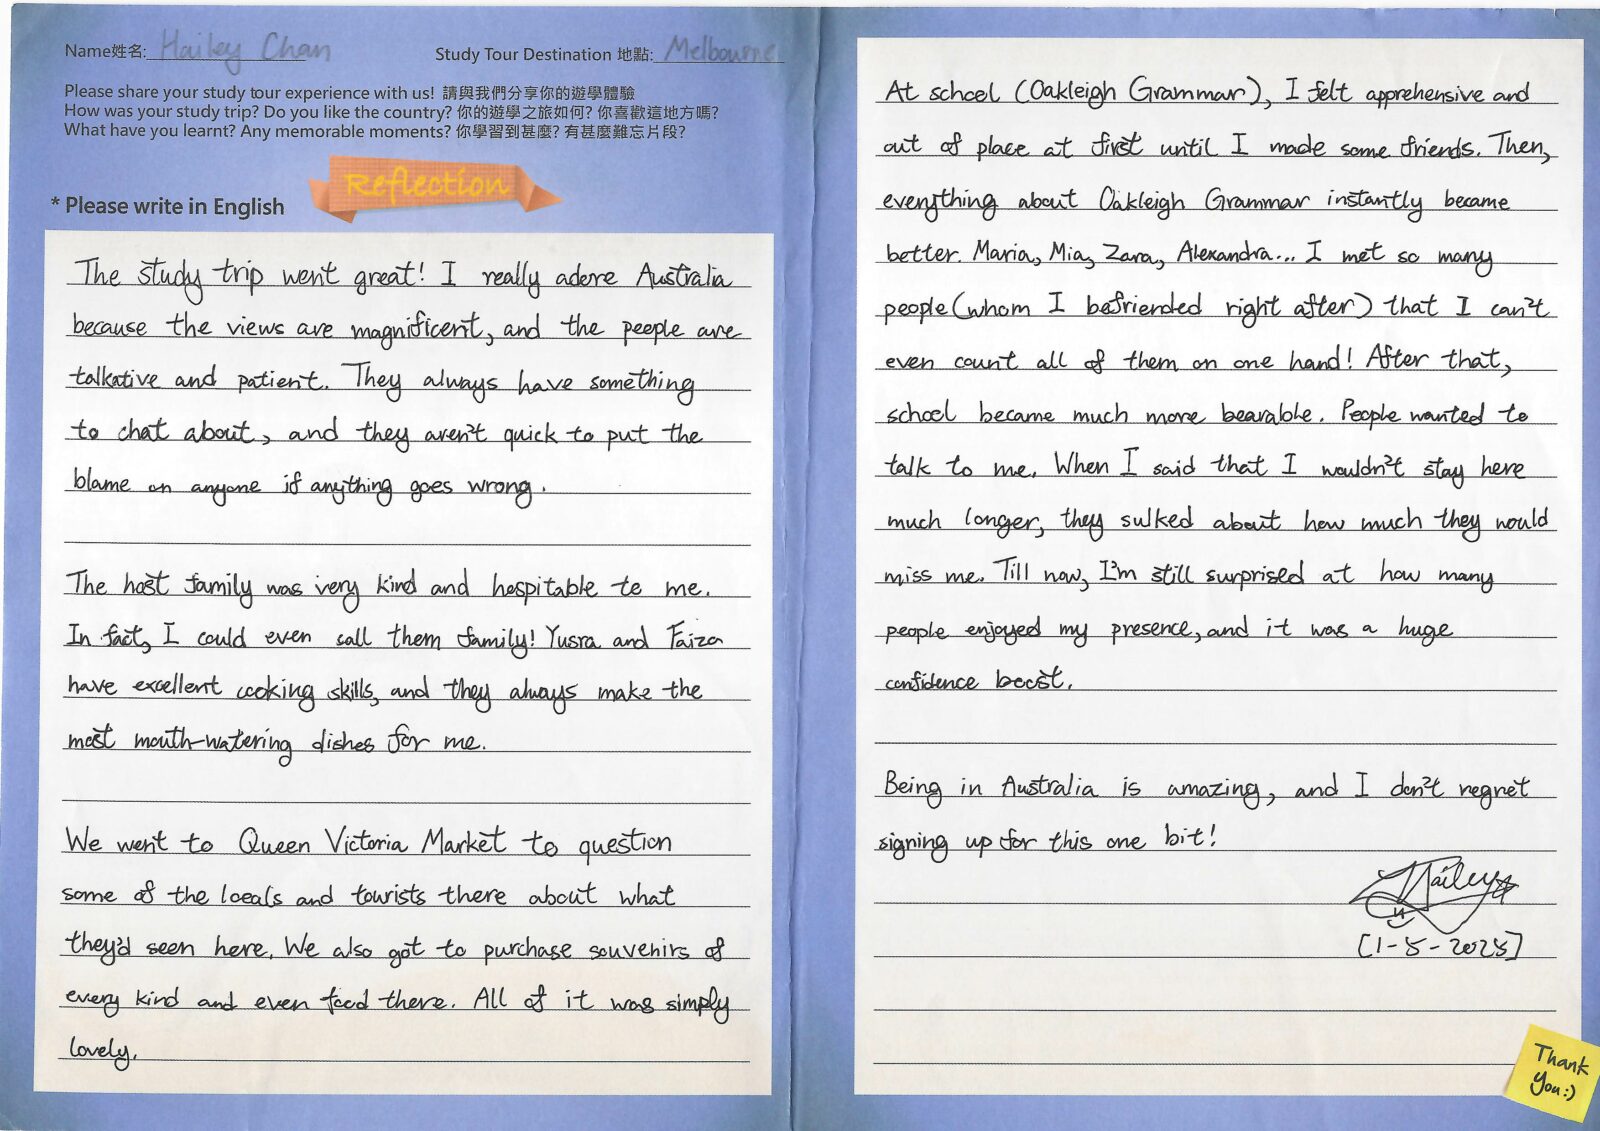 Name姓名: Hailey Chan
Study Tour Destination 地點: Melbourne
Please share your study tour experience with us! 請與我們分享你的遊學體驗
How was your study trip? Do you like the country? 你的遊學之旅如何? 你喜歡這地方嗎?
What have you learnt? Any memorable moments? 你學習到甚麼? 有甚麼難忘片段?
Reflection
* Please write in English
The study trip went great! I really adore Australia
because the views are magnificent, and the people are
talkative and patient. They always have something
to chat about, and they aren't quick to put the
blame on anyone if anything goes wrong.
The host family was very kind and hospitable to me.
In fact, I could even call them family! Yusra and Faiza
have excellent cooking skills, and they always make the
most mouth-watering dishes for me.
We went to Queen Victoria Market to question
some of the locals and tourists there about what
they'd seen here. We also got to purchase souvenirs of
every kind and even food there. All of it was simply
lovely.
At school (Oakleigh Grammar), I felt apprehensive and
out of place at first until I made some friends. Then,
everything about Oakleigh Grammar instantly became
better. Maria, Mia, Zara, Alexandra... I met so many
people (whom I befriended right after) that I can't
even count all of them on one hand! After that,
school became much more bearable. People wanted to
talk to me. When I said that I wouldn't stay here
much longer, they sulked about how much they would
miss me. Till now, I'm still surprised at how many
people enjoyed my presence, and it was a huge
confidence boost.
Being in Australia is amazing, and I don't regret
signing up for this one bit!
Hailey
[1-5-2025]
Thank
You:)